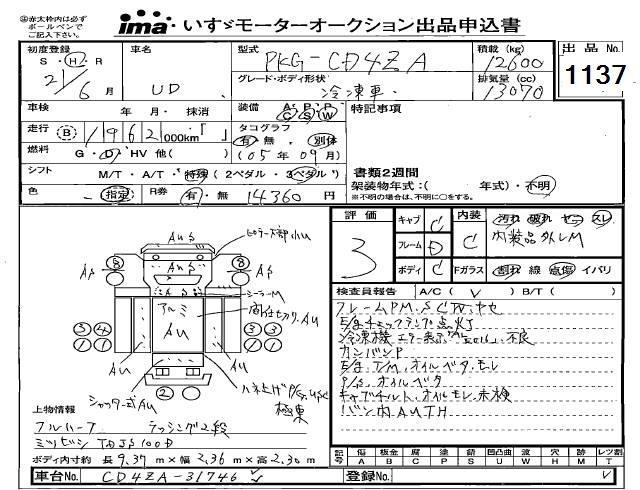 ④赤太枠内は必ず
ボールペンで
ご記入下さい。
ima いすゞモーターオークション出品申込書
初度登録 車名 型式 積載 (kg) 出品No.
S・H・R PKG-CD4ZA 12600
21/6月 UD グレード・ボディ形状 排気量 (cc) 1137
冷凍車 13070
車検 年 月・ 抹消 装備 A C P S P W 特記事項
走行 B 1962 000km「 」 タコグラフ 有・無 別体
燃料 G・D・HV 他( ) (05年09月)
シフト M/T・A/T・特殊(2ペダル・3ペダル) 書類2週間
架装物年式:( 年式)・不明
※不明の場合は、不明に○をする。
色 指定 R券 有・無 14360円
評価 キャブ C 内装 汚れ 破れ ヤニ スレ
3 フレーム D C 内装品外しM
ボディ C Fガラス 割れ 線 点傷 イバリ
検査員報告 A/C( ✓ ) B/T( )
フレームPM.SCW.ヤセ
E/gチェックランプ点灯
冷凍機 エラー表示 不良
カンバンP
E/g.T/M.オイルベタ.モレ
P/S.オイルベタ
キャブチルト.オイルモレ.未検
バン内AUTH
AUS
ピラー下部小U
⑧ ⑧
AS AS
AS
シーラーM
アルミ
AU
間仕切り.AU
③④ ③③
①① ①①
AU AU
②
シャッター式AU
ハネ上げP/G.USC
極東
上物情報
フルハーフ ラッシング2段
ミツビシ TDJS100D
ボディ内寸約 長9.37m×幅2.36m×高2.30m
記号 A 傷 B 板金 C 腐 P 塗 S 錆 U 凹凸曲 W 波 H 穴 M 欠 T レツ割
車台No. CD4ZA-31746 登録No.